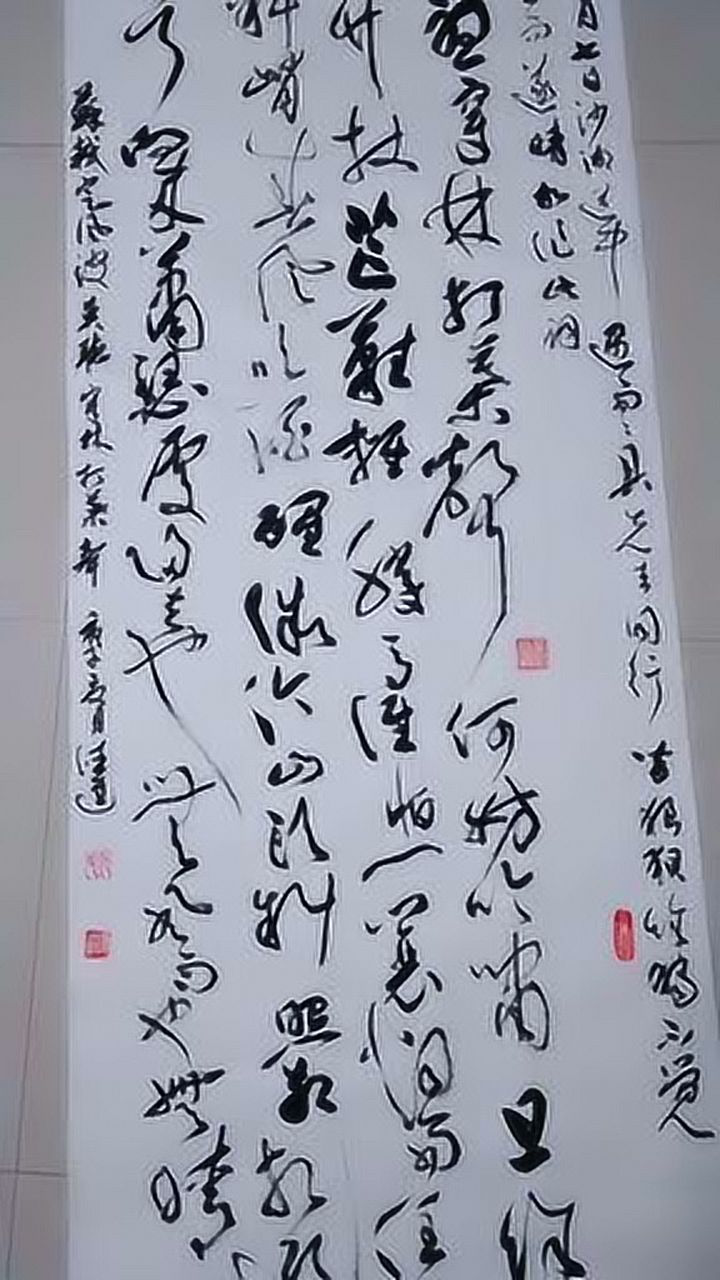 月七日沙湖道中遇雨〻具先去同行皆狼狽余獨不覺
而遂晴故作此詞
聽穿林打葉聲何妨吟嘯且徐
竹杖芒鞋輕勝馬誰怕一蓑烟雨任
料峭春風吹酒醒微冷山頭斜照却相
向來蕭瑟處歸去也無風雨也無晴
蘇軾定風波莫聽穿林打葉聲庚子